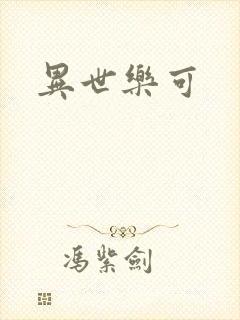 異世樂可
馮紫劍